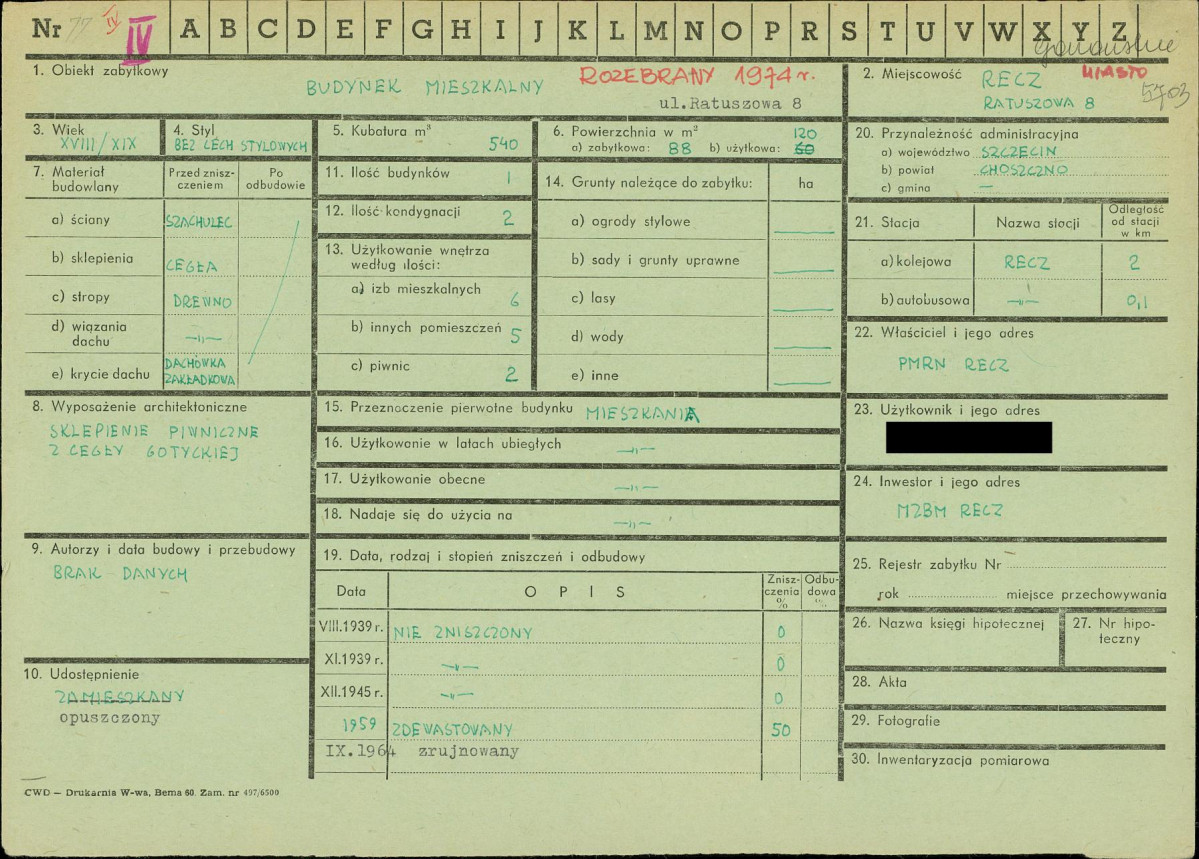 Nr 77 IV IV A B C D E F G H I J K L M N O P R S T U V W X Y Z
1. Obiekt zabytkowy
BUDYNEK MIESZKALNY
ROZEBRANY 1974 r.
ul.Ratuszowa 8
2. Miejscowość RECZ
MIASTO
RATUSZOWA 8
5703
3. Wiek
XVIII/XIX
4. Styl
BEZ CECH STYLOWYCH
5. Kubatura m³
540
6. Powierzchnia w m²
a) zabytkowa: 88 b) użytkowa: 120 60
7. Materiał budowlany
Przed zniszczeniem
Po odbudowie
a) ściany SZACHULEC
b) sklepienia CEGŁA
c) stropy DREWNO
d) wiązania dachu —„—
e) krycie dachu DACHÓWKA ZAKŁADKOWA
8. Wyposażenie architektoniczne
SKLEPIENIE PIWNICZNE
Z CEGŁY GOTYCKIEJ
9. Autorzy i data budowy i przebudowy
BRAK DANYCH
10. Udostępnienie
ZAMIESZKANY
opuszczony
11. Ilość budynków 1
12. Ilość kondygnacji 2
13. Użytkowanie wnętrza
według ilości:
a) izb mieszkalnych 6
b) innych pomieszczeń 5
c) piwnic 2
14. Grunty należące do zabytku: ha
a) ogrody stylowe —
b) sady i grunty uprawne —
c) lasy —
d) wody —
e) inne —
15. Przeznaczenie pierwotne budynku MIESZKANIA
16. Użytkowanie w latach ubiegłych —„—
17. Użytkowanie obecne —„—
18. Nadaje się do użycia na —„—
19. Data, rodzaj i stopień zniszczeń i odbudowy
Data
O P I S
Zniszczenia %
Odbudowa %
VIII.1939 r. NIE ZNISZCZONY 0
XI.1939 r. —„— 0
XII.1945 r. —„— 0
1959 ZDEWASTOWANY 50
IX.1964 zrujnowany
20. Przynależność administracyjna
a) województwo SZCZECIN
b) powiat CHOSZCZNO
c) gmina —
21. Stacja
Nazwa stacji
Odległość od stacji w km
a) kolejowa RECZ 2
b) autobusowa —„— 0,1
22. Właściciel i jego adres
PMRN RECZ
23. Użytkownik i jego adres
24. Inwestor i jego adres
MZBM RECZ
25. Rejestr zabytku Nr
rok miejsce przechowywania
26. Nazwa księgi hipotecznej
27. Nr hipoteczny
28. Akta
29. Fotografie
30. Inwentaryzacja pomiarowa
CWD — Drukarnia W-wa, Bema 60. Zam. nr 497/6500